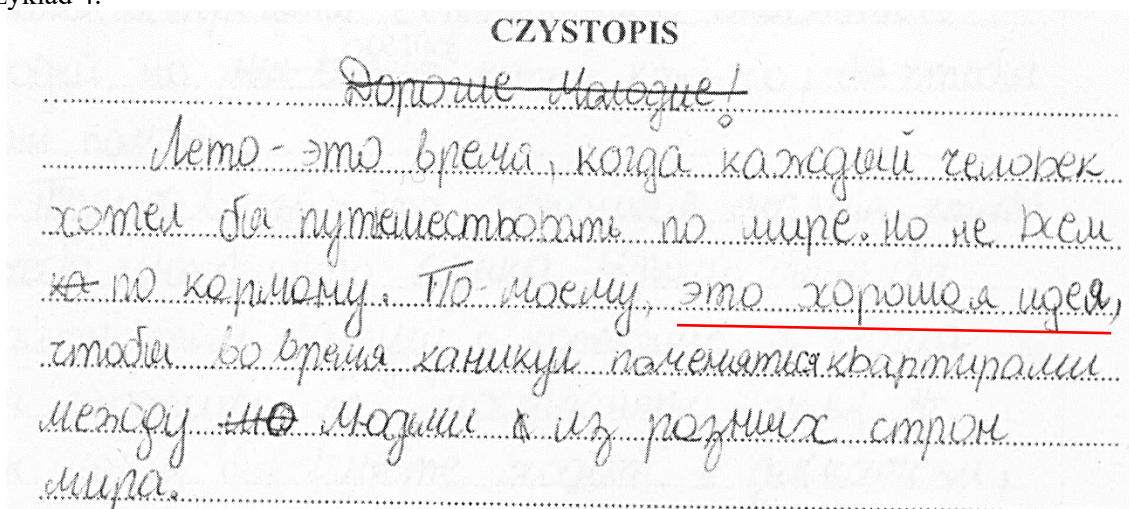 CZYSTOPIS
Дорогие Молодые!
Лето - это время, когда каждый человек
хотел бы путешествовать по мире. но не всем
по карману. По-моему, это хорошая идея,
чтобы во время каникул поменяться квартирами
между людьми из разных строн
мира.